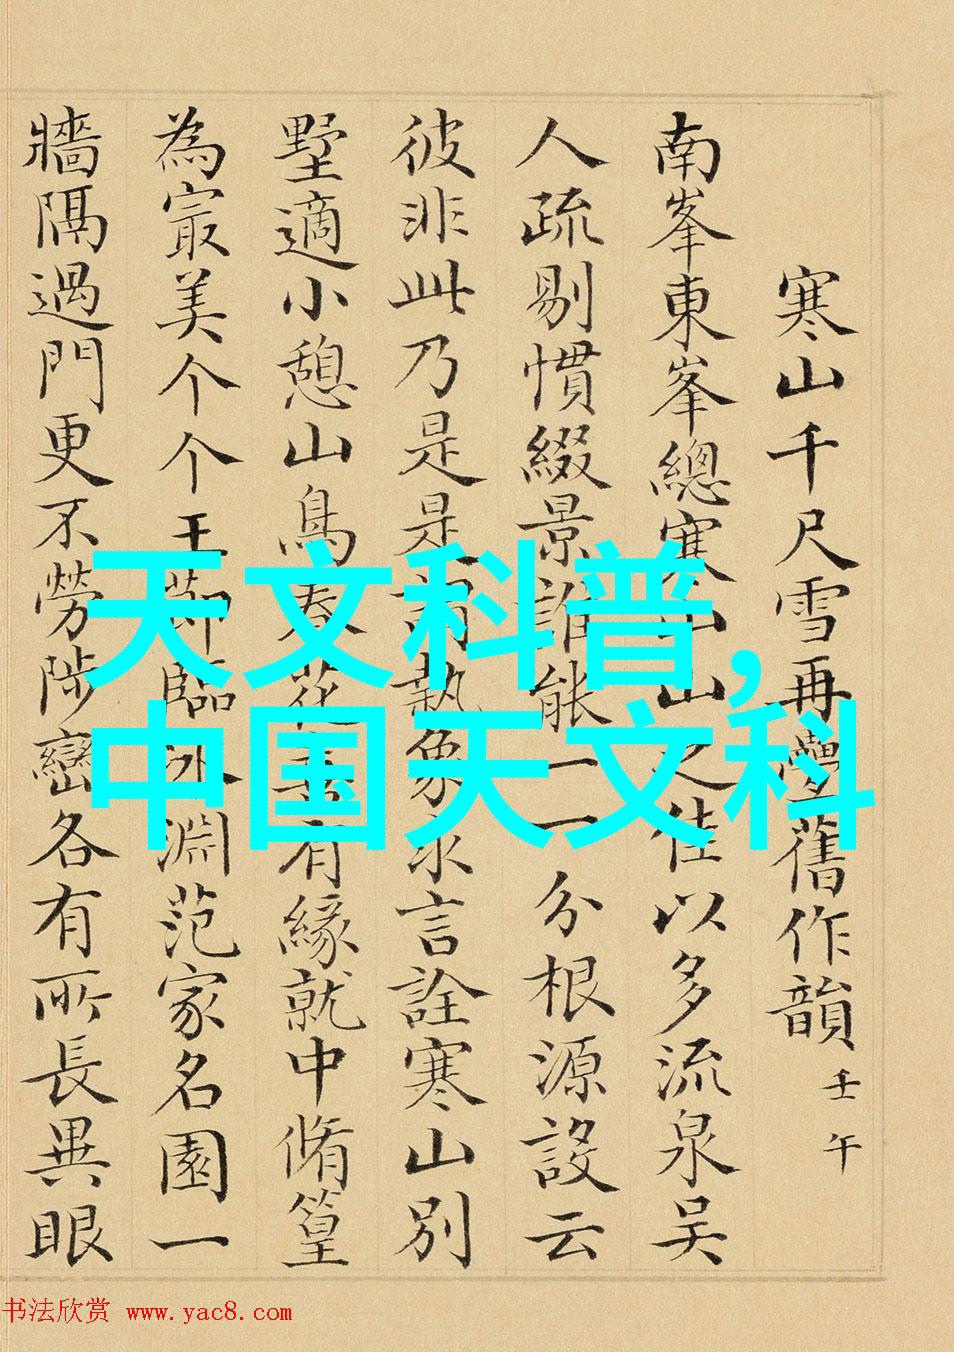 寒山千尺雪再疊舊作韻 壬午
南峯東峯總寒山山之佳以多流泉吴
人疏剔慣綴景誰能一一分根源設云
彼非此乃是是詞執象求言詮寒山別
墅適小憩山鳥春花言有緣就中脩篁
為寂美个个玉節臨冰淵范家名園一
牆隔過門更不勞陟巒各有所長異眼
天文科普,
中国天文科
书法欣赏 www.yac8.com